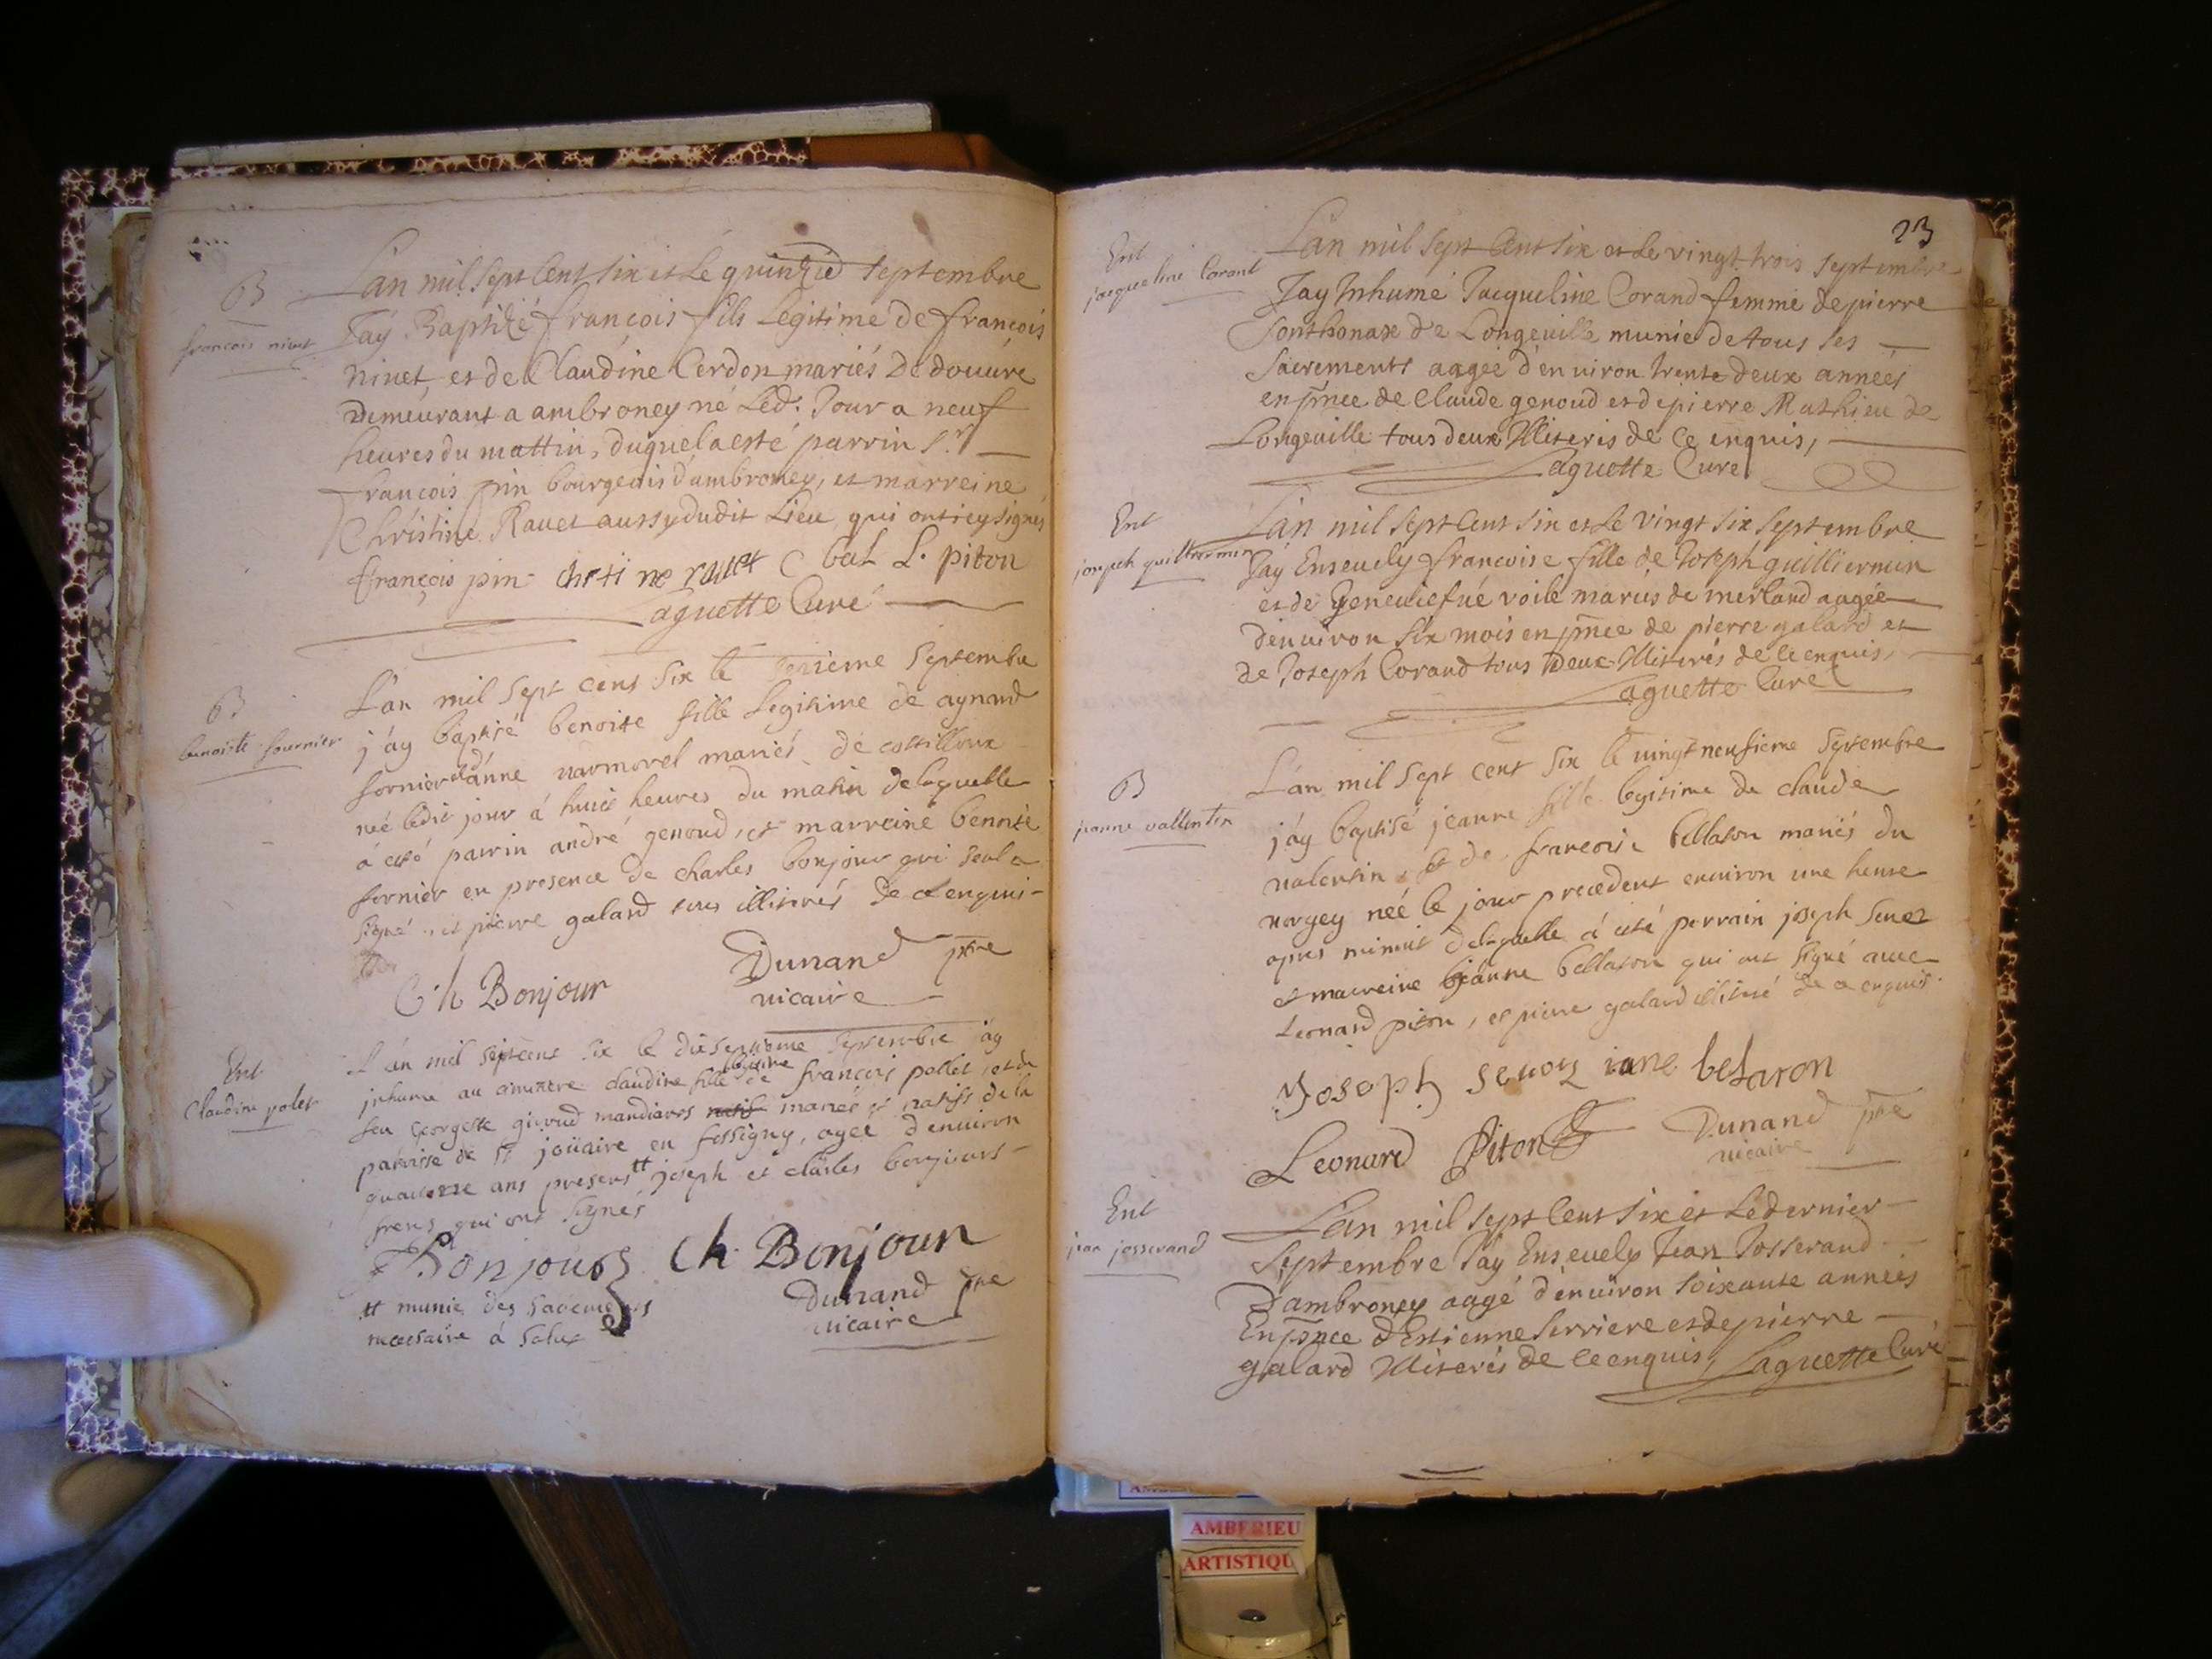 B
francois nivet
L'an mil sept Cent six et Le quinzie septembre
J'ay Baptizé françois fils Legitime de françois
nivet et de Claudine Cerdon mariés De douure
Demeurant a ambroney né Led. Jour a neuf
heures du mattin, duquel a esté parrin Sr
françois pin bourgeois d'ambroney, et marreine
Christine Rauet aussy dudit Lieu qui ont icy signés
françois pin chrti ne rauet C bal L. piton
Laguette Curé
B
benoiste fournier
L'an mil sept cent six le sesieme septembre
j'ay baptisé benoite fille Legitime de aynard
fornier et d'anne marmorel mariés de
neé ledit jour á huit heures du matin delaquelle
á eté parrin andré genoud, et marreine benoite
fornier en presence de charles bonjour qui seul a
signé, et pierre galard tous illiterés de ce enquis
Ch Bonjour Dunand ptre
vicaire
Ent
Claudine polet
L'an mil sept cent six le dixseptieme septembre j'ay
inhume au cimittre claudine fille legitime de françois pollet, et de
feu georgette giroud mandians mariés et natifs de la
paroisse de st joüaire en fossigny, agee d'enuiron
quatorze ans presens tt joseph et charles bonjours
freres qui ont signés
Bonjour Ch Bonjour
tt munie des sacemens Dunand ptre
necesaire á salut vicaire
23
Ent
jacqueline Corant
L'an mil sept Cent six et Le vingt trois septembre
J'ay Inhumé Jacqueline Corand femme de pierre
Sonthonax de Longeuille munie de tous ses
Sacrements aagée d'enuiron trente deux années
en pnce de Claude genoud et de pierre Mathieu de
Longeuille tous deux Illiteris de Ce enquis,
Laguette Curé
Ent
joseph guilliermin
L'an mil sept Cent six et Le Vingt six septembre
J'ay Enseuely francoise fille de Joseph guilliermin
et de Geneuiefué voile mariés de merland aagée
d'enuiron six mois en pnce de pierre galard et
de Joseph Corand tous Deux Illiterés de Ce enquis,
Laguette Curé
B
jeanne vallentin
L'an mil sept cent six le vingt neufieme septembre
j'ay baptisé jeanne fille legitime de claude
valentin, et de francoise bellaton mariés du
morgey neé le jour precedent enuiron une heure
apres minuit delaquelle á eté parrain joseph seuoz
et marreine jeanne bellaton qui ont signé auec
Leonard piton, et pierre galard illitiré de ce enquis.
Joseph seuoz iane belaron
Leonard Piton Dunand ptre
vicaire
Ent
jean josserand
L'an mil sept Cent six et Le dernier
septembre J'ay Enseuely Jean Josserand
D'ambroney aagé d'enuiron soixante années
En pnce d'Estienne serriere et de pierre
galard Illiterés de Ce enquis, Laguette Curé
AMBERIEU
ARTISTIQU